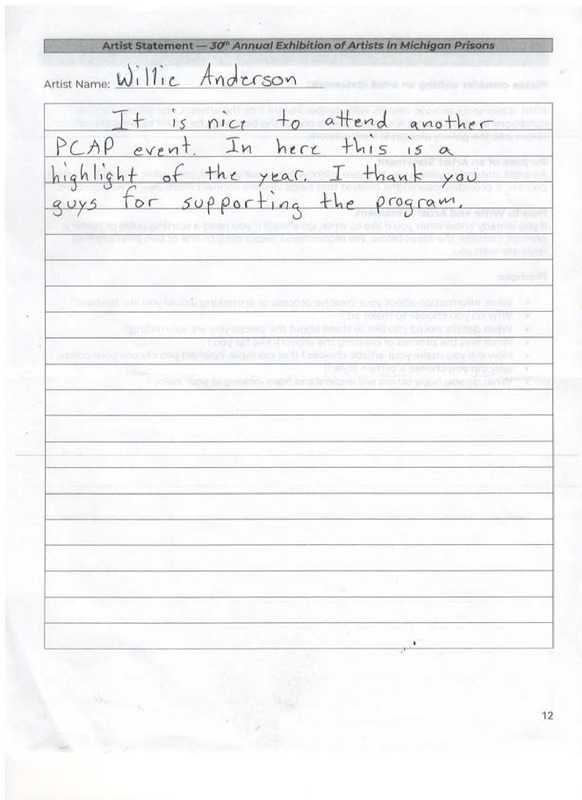 Artist Statement — 30th Annual Exhibition of Artists in Michigan Prisons
Artist Name: Willie Anderson
It is nice to attend another
PCAP event. In here this is a
highlight of the year. I thank you
guys for supporting the program.
12